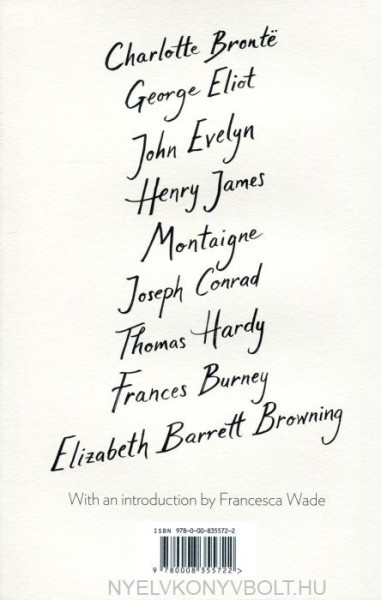 Charlotte Brontë
George Eliot
John Evelyn
Henry James
Montaigne
Joseph Conrad
Thomas Hardy
Frances Burney
Elizabeth Barrett Browning
With an introduction by Francesca Wade
ISBN 978-0-00-835572-2
9 780008 355722 >
NYELVKONYVBOLT.HU